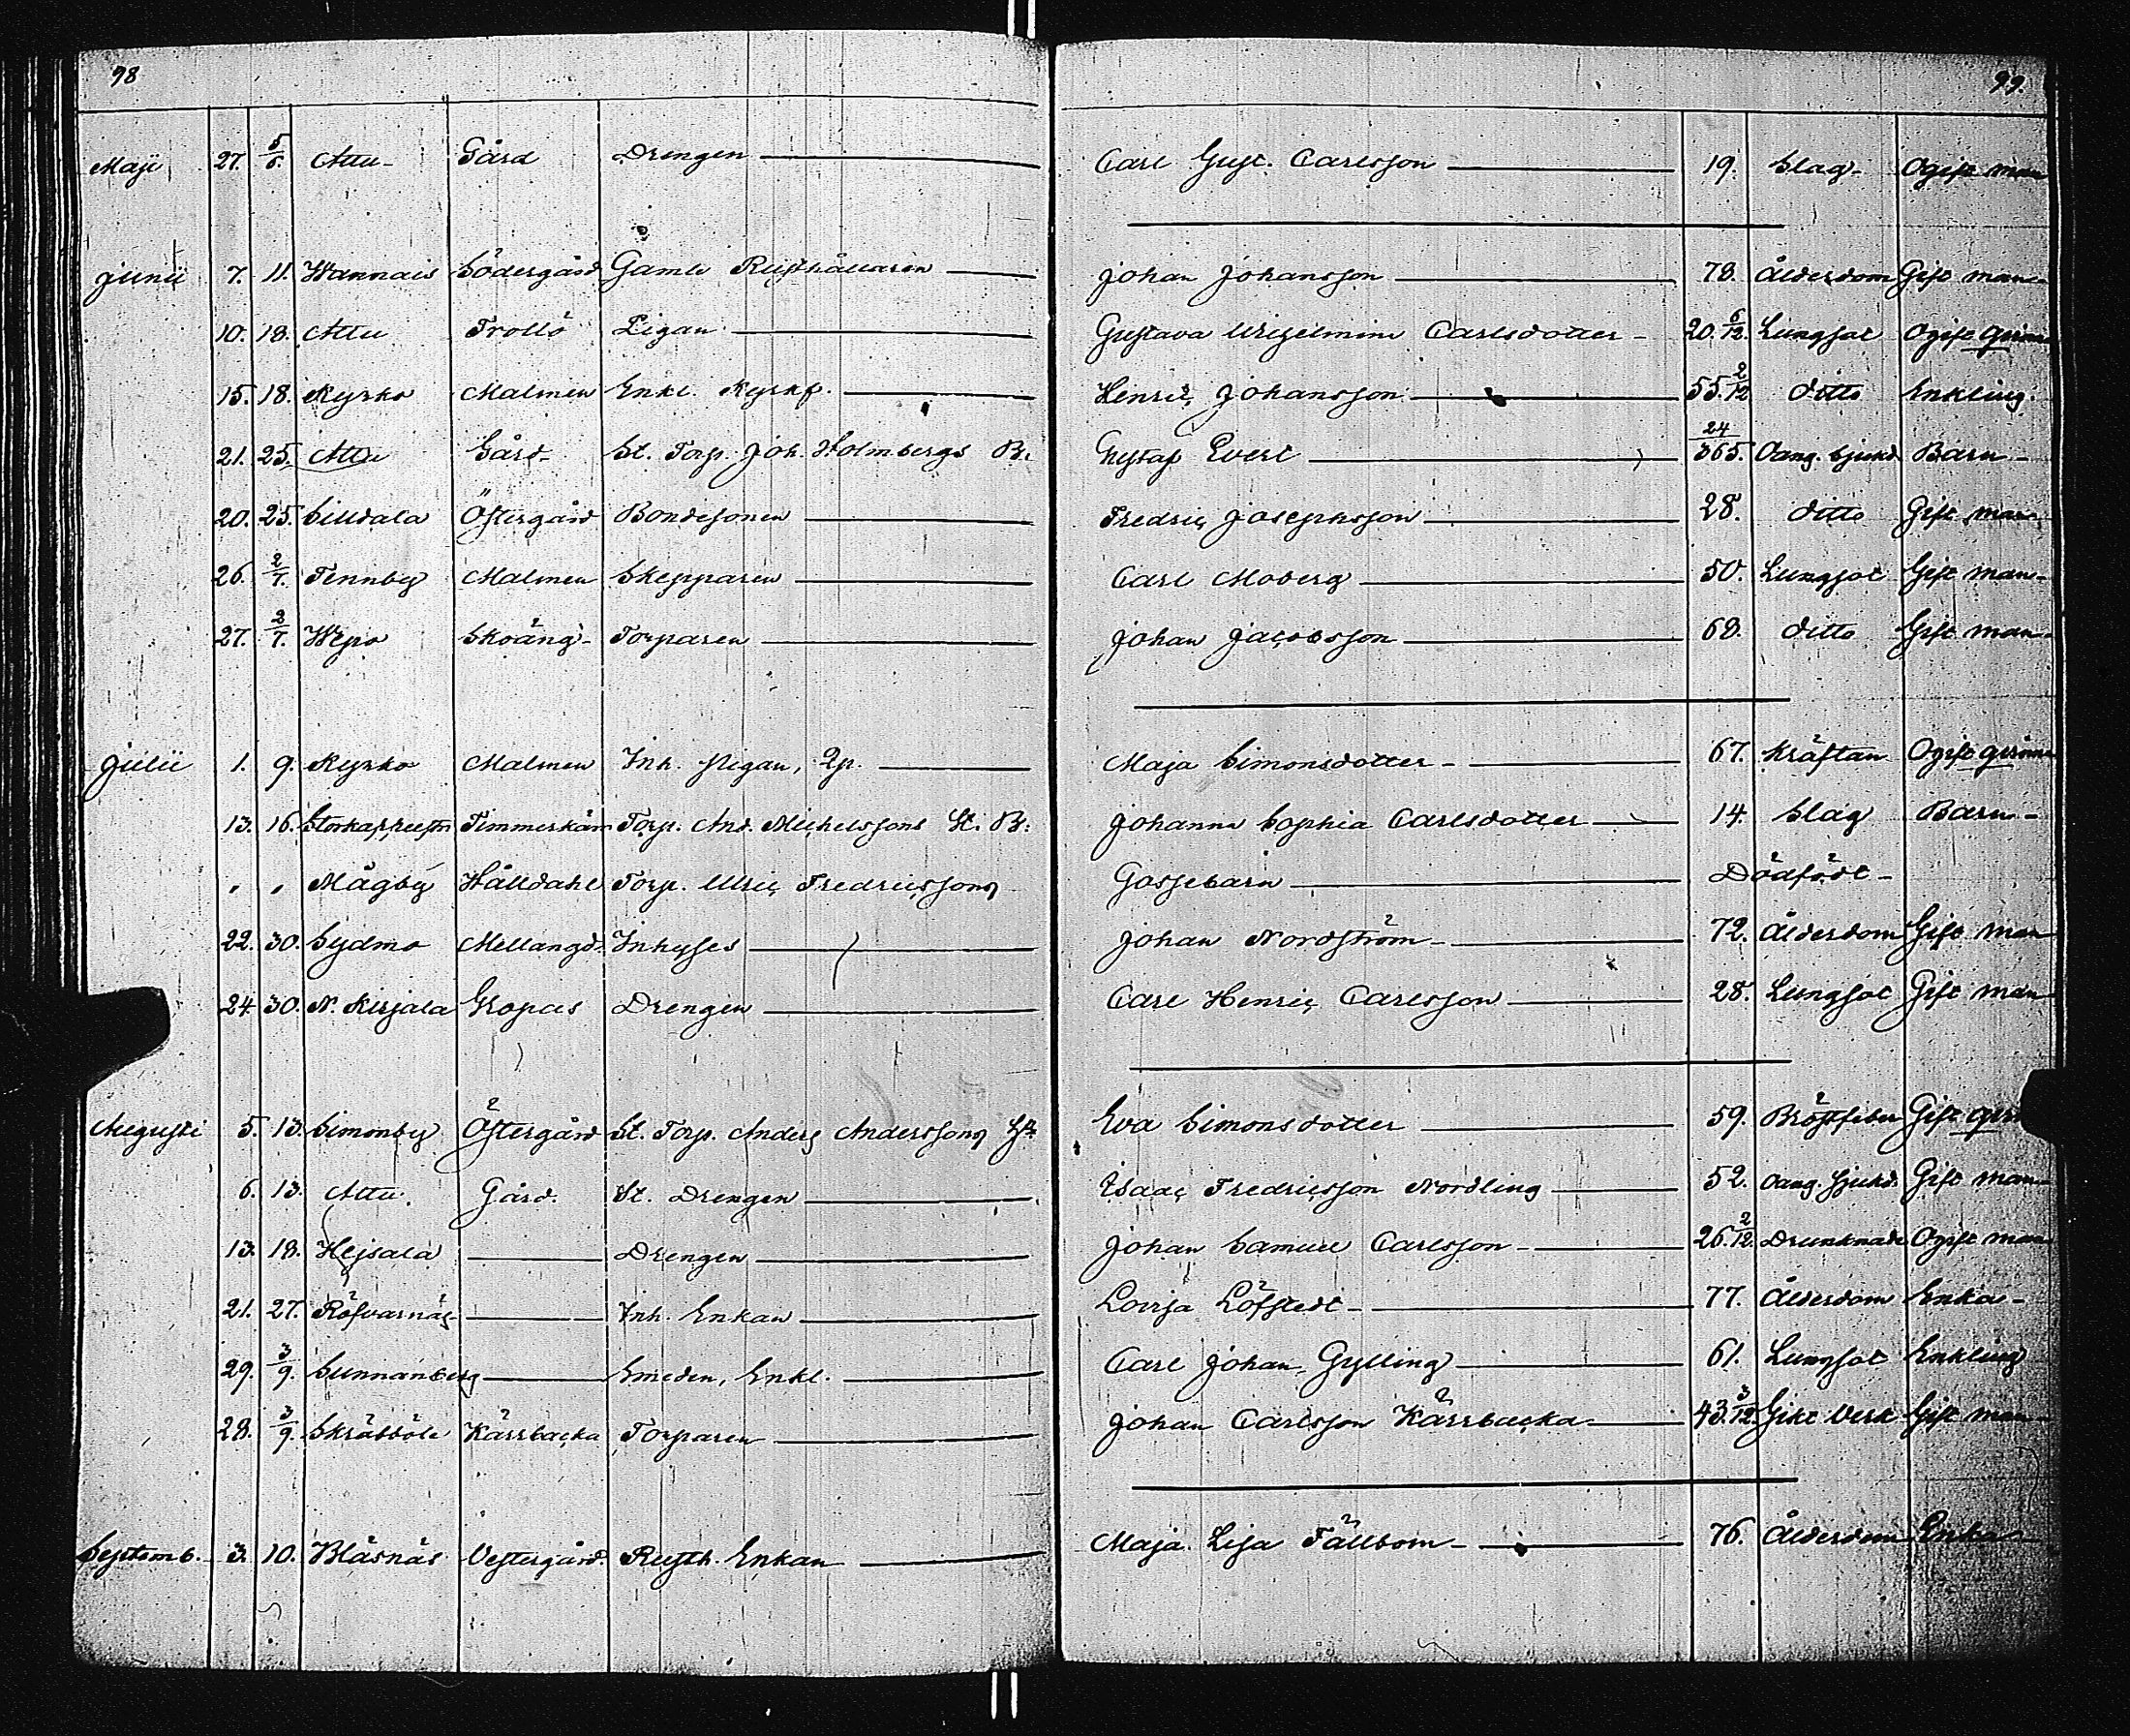 98
99.
Maji 27. 5/6. Attu Gård Drengen Carl Gust. Carlsson 19. Slag Ogift man
Junii 7. 11. Wannais Södergård Gamle Rusthållaren Johan Johansson 78. Ålderdom Gift man
10. 18. Attu Trollö Pigan Gustava Wilhelmina Carlsdotter 20. 6/12. Lungsot Ogift qvinna
15. 18. Kyrko Malmen Enkl. Kyrkf. Henric Johansson 55. 2/12 ditto Enkling.
21. 25. Attu Gård St. Torp. Joh. Holmbergs B. Gustaf Evert 24/365. Oang. Sjukd. Barn
20. 25. Silldala Östergård Bondesonen Fredric Josephsson 28. ditto Gift man
26. 2/7. Tennby Malmen Skepparen Carl Moberg 50. Lungsot Gift man
27. 2/7. Wepo Skoäng Torparen Johan Jacobsson 68. ditto Gift man
Julii 1. 9. Kyrko Malmen Inh. Pigan, Qp. Maja Simonsdotter 67. Kräftan Ogift qvinna
13. 16. Timmerkärr Torp. And. Michelssons St. B. Johanna Sophia Carlsdotter 14. Slag Barn
" " Mågby Hålldahl Torp. Ulric Fredricssons Gossebarn Dödfödt
22. 30. Sydmo Mellangd. Inhyses Johan Nordström 72. Ålderdom Gift man
24. 30. N. Kirjala Gropas Drengen Carl Henric Carlsson 28. Lungsot Gift man
Augusti 5. 13. Simonby Östergård St. Torp. Anders Anderssons H. Eva Simonsdotter 59. Bröstfeber Gift qvin
6. 13. Attu Gård. St. Drengen Isaac Fredricsson Nordling 52. Oang. Sjukd. Gift man
13. 18. Heisala Drengen Johan Samuel Carlsson 26. 2/12. Drunknade Ogift man
21. 27. Röfvarnäs Inh. Enkan Lovisa Löfstedt 77. Ålderdom Enka
29. 3/9. Sunnanberg Smeden, Enkl. Carl Johan Gylling 61. Lungsot Enkling
28. 3/9. Skräbböle Kärrbacka Torparen Johan Carlsson Kärrbacka 43. 3/12. Gikt Verk Gift man
Septemb. 3. 10. Bläsnäs Vestergård. Rusth. Enkan Maja Lisa Fällbom 76. Ålderdom Enka